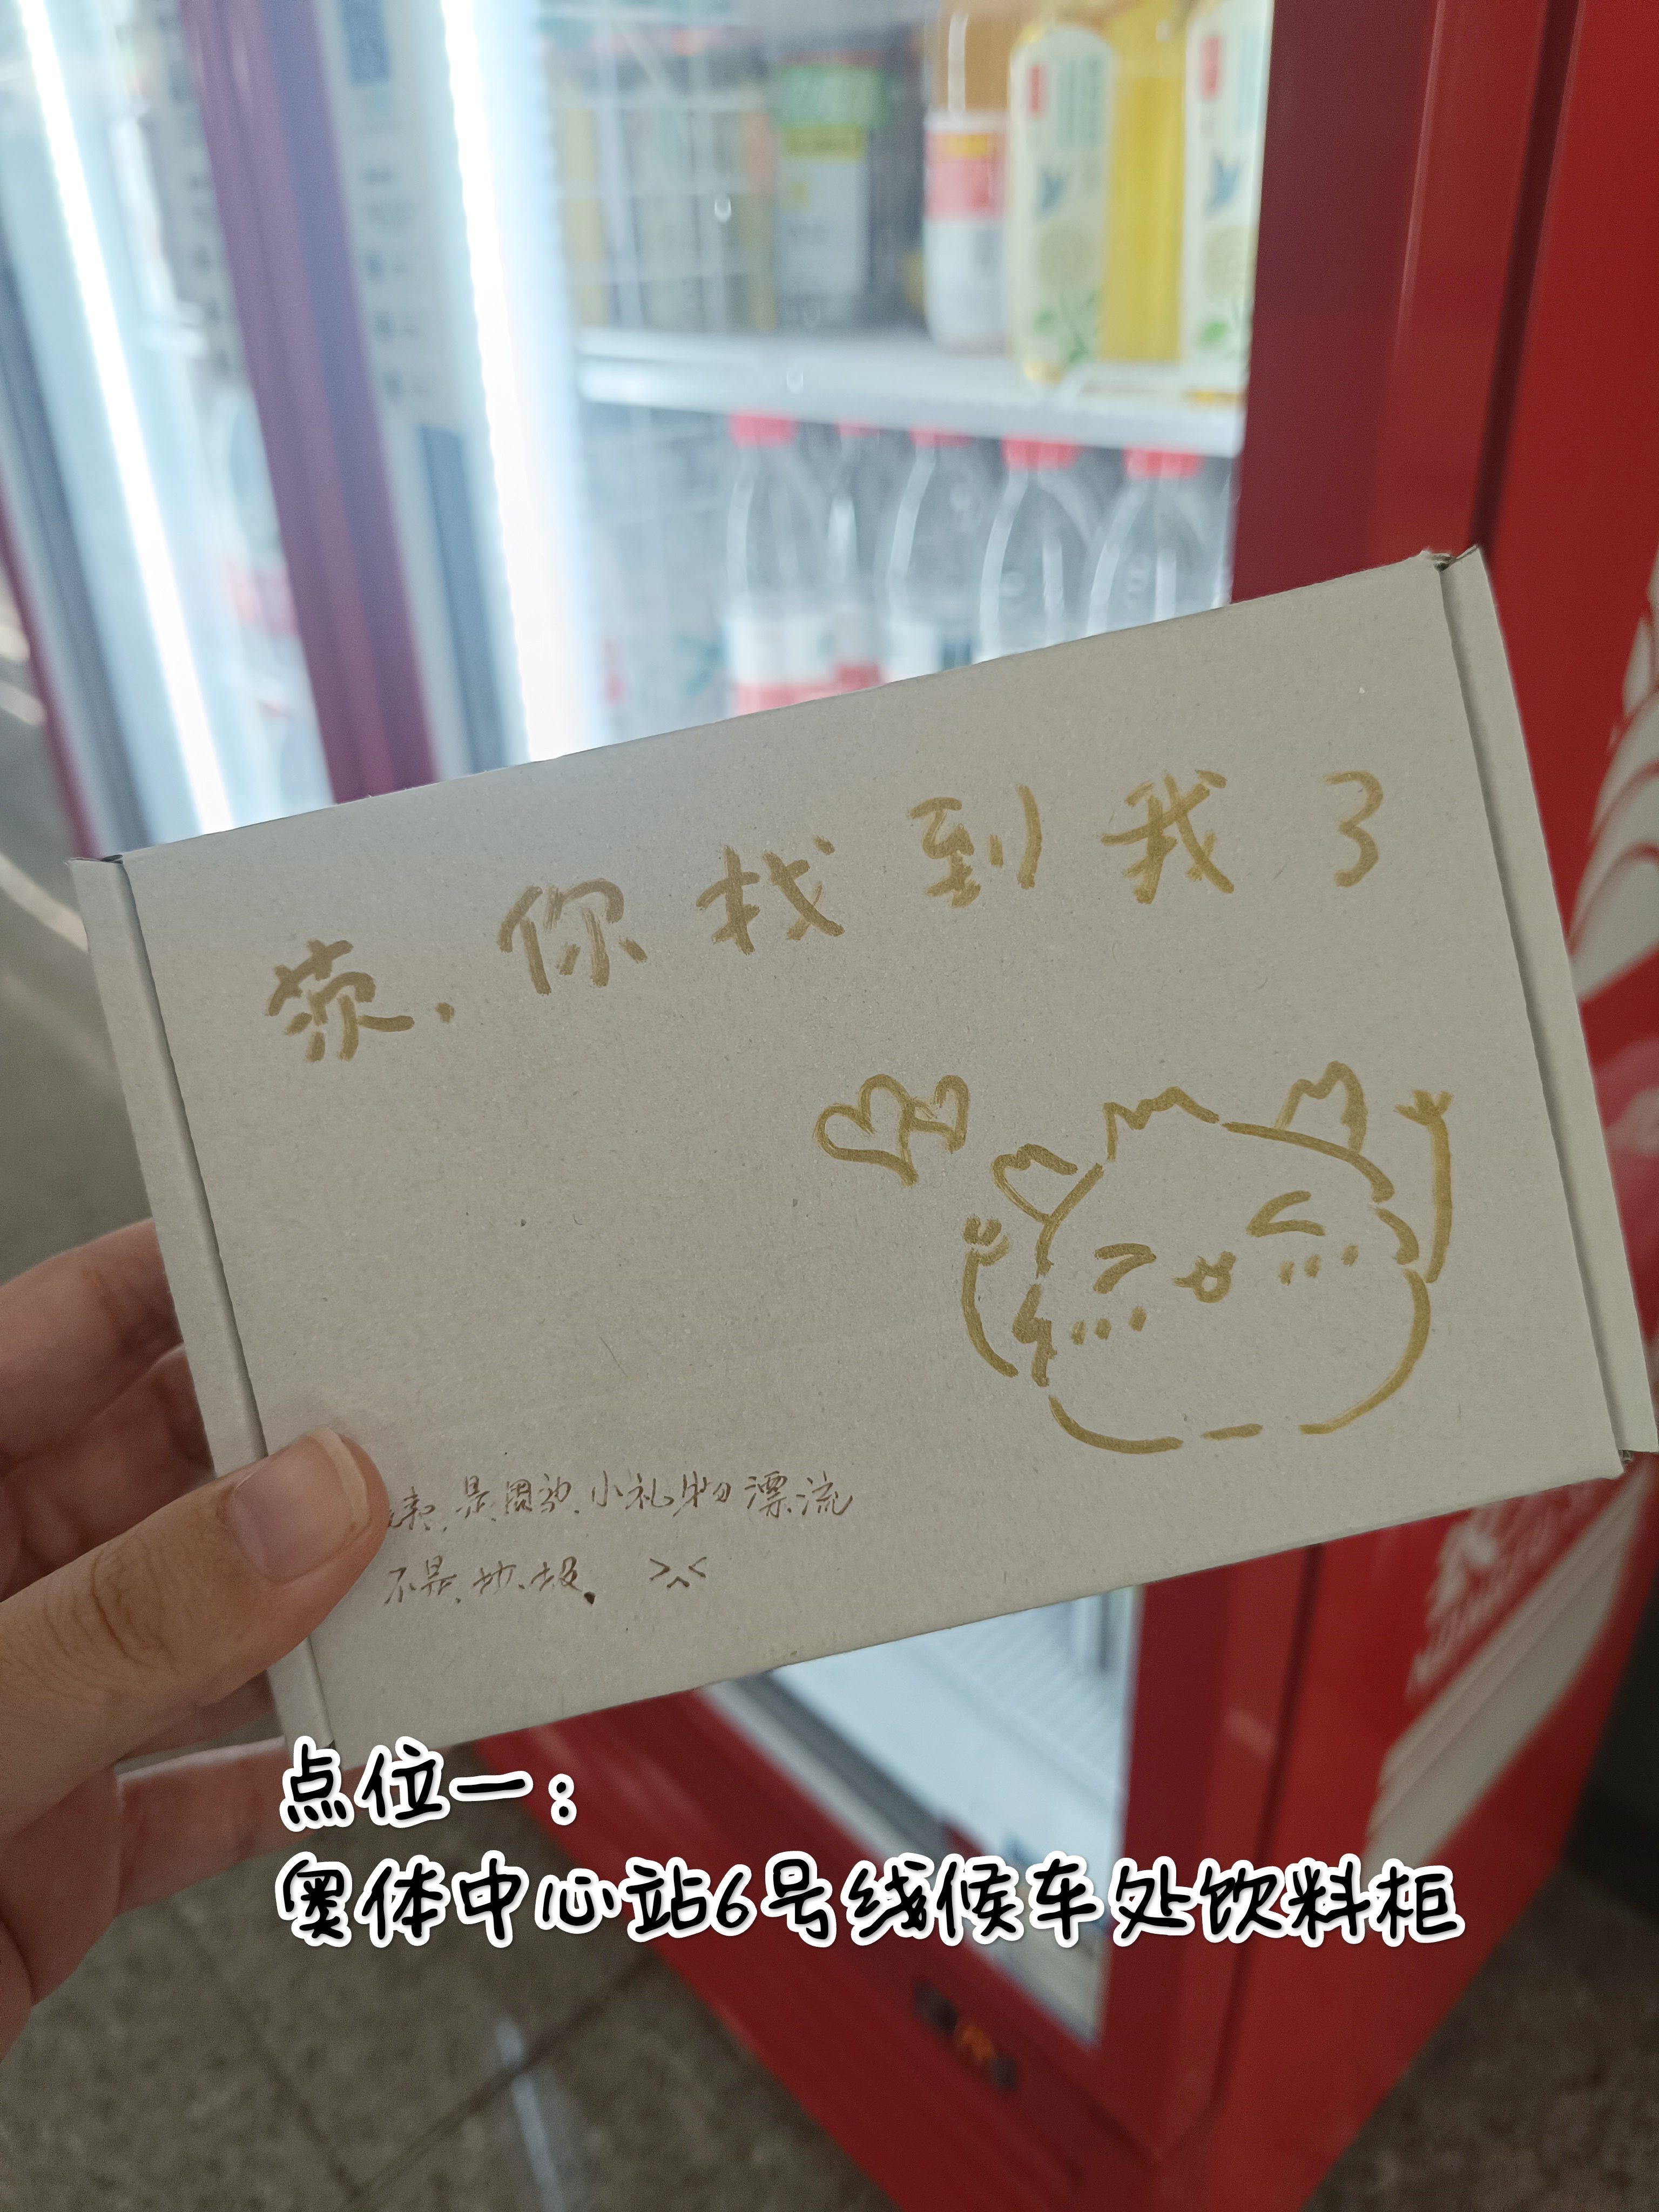 荧，你找到我了
是周边小礼物漂流
不是垃圾. >^<
点位一：
奥体中心站6号线候车处饮料柜